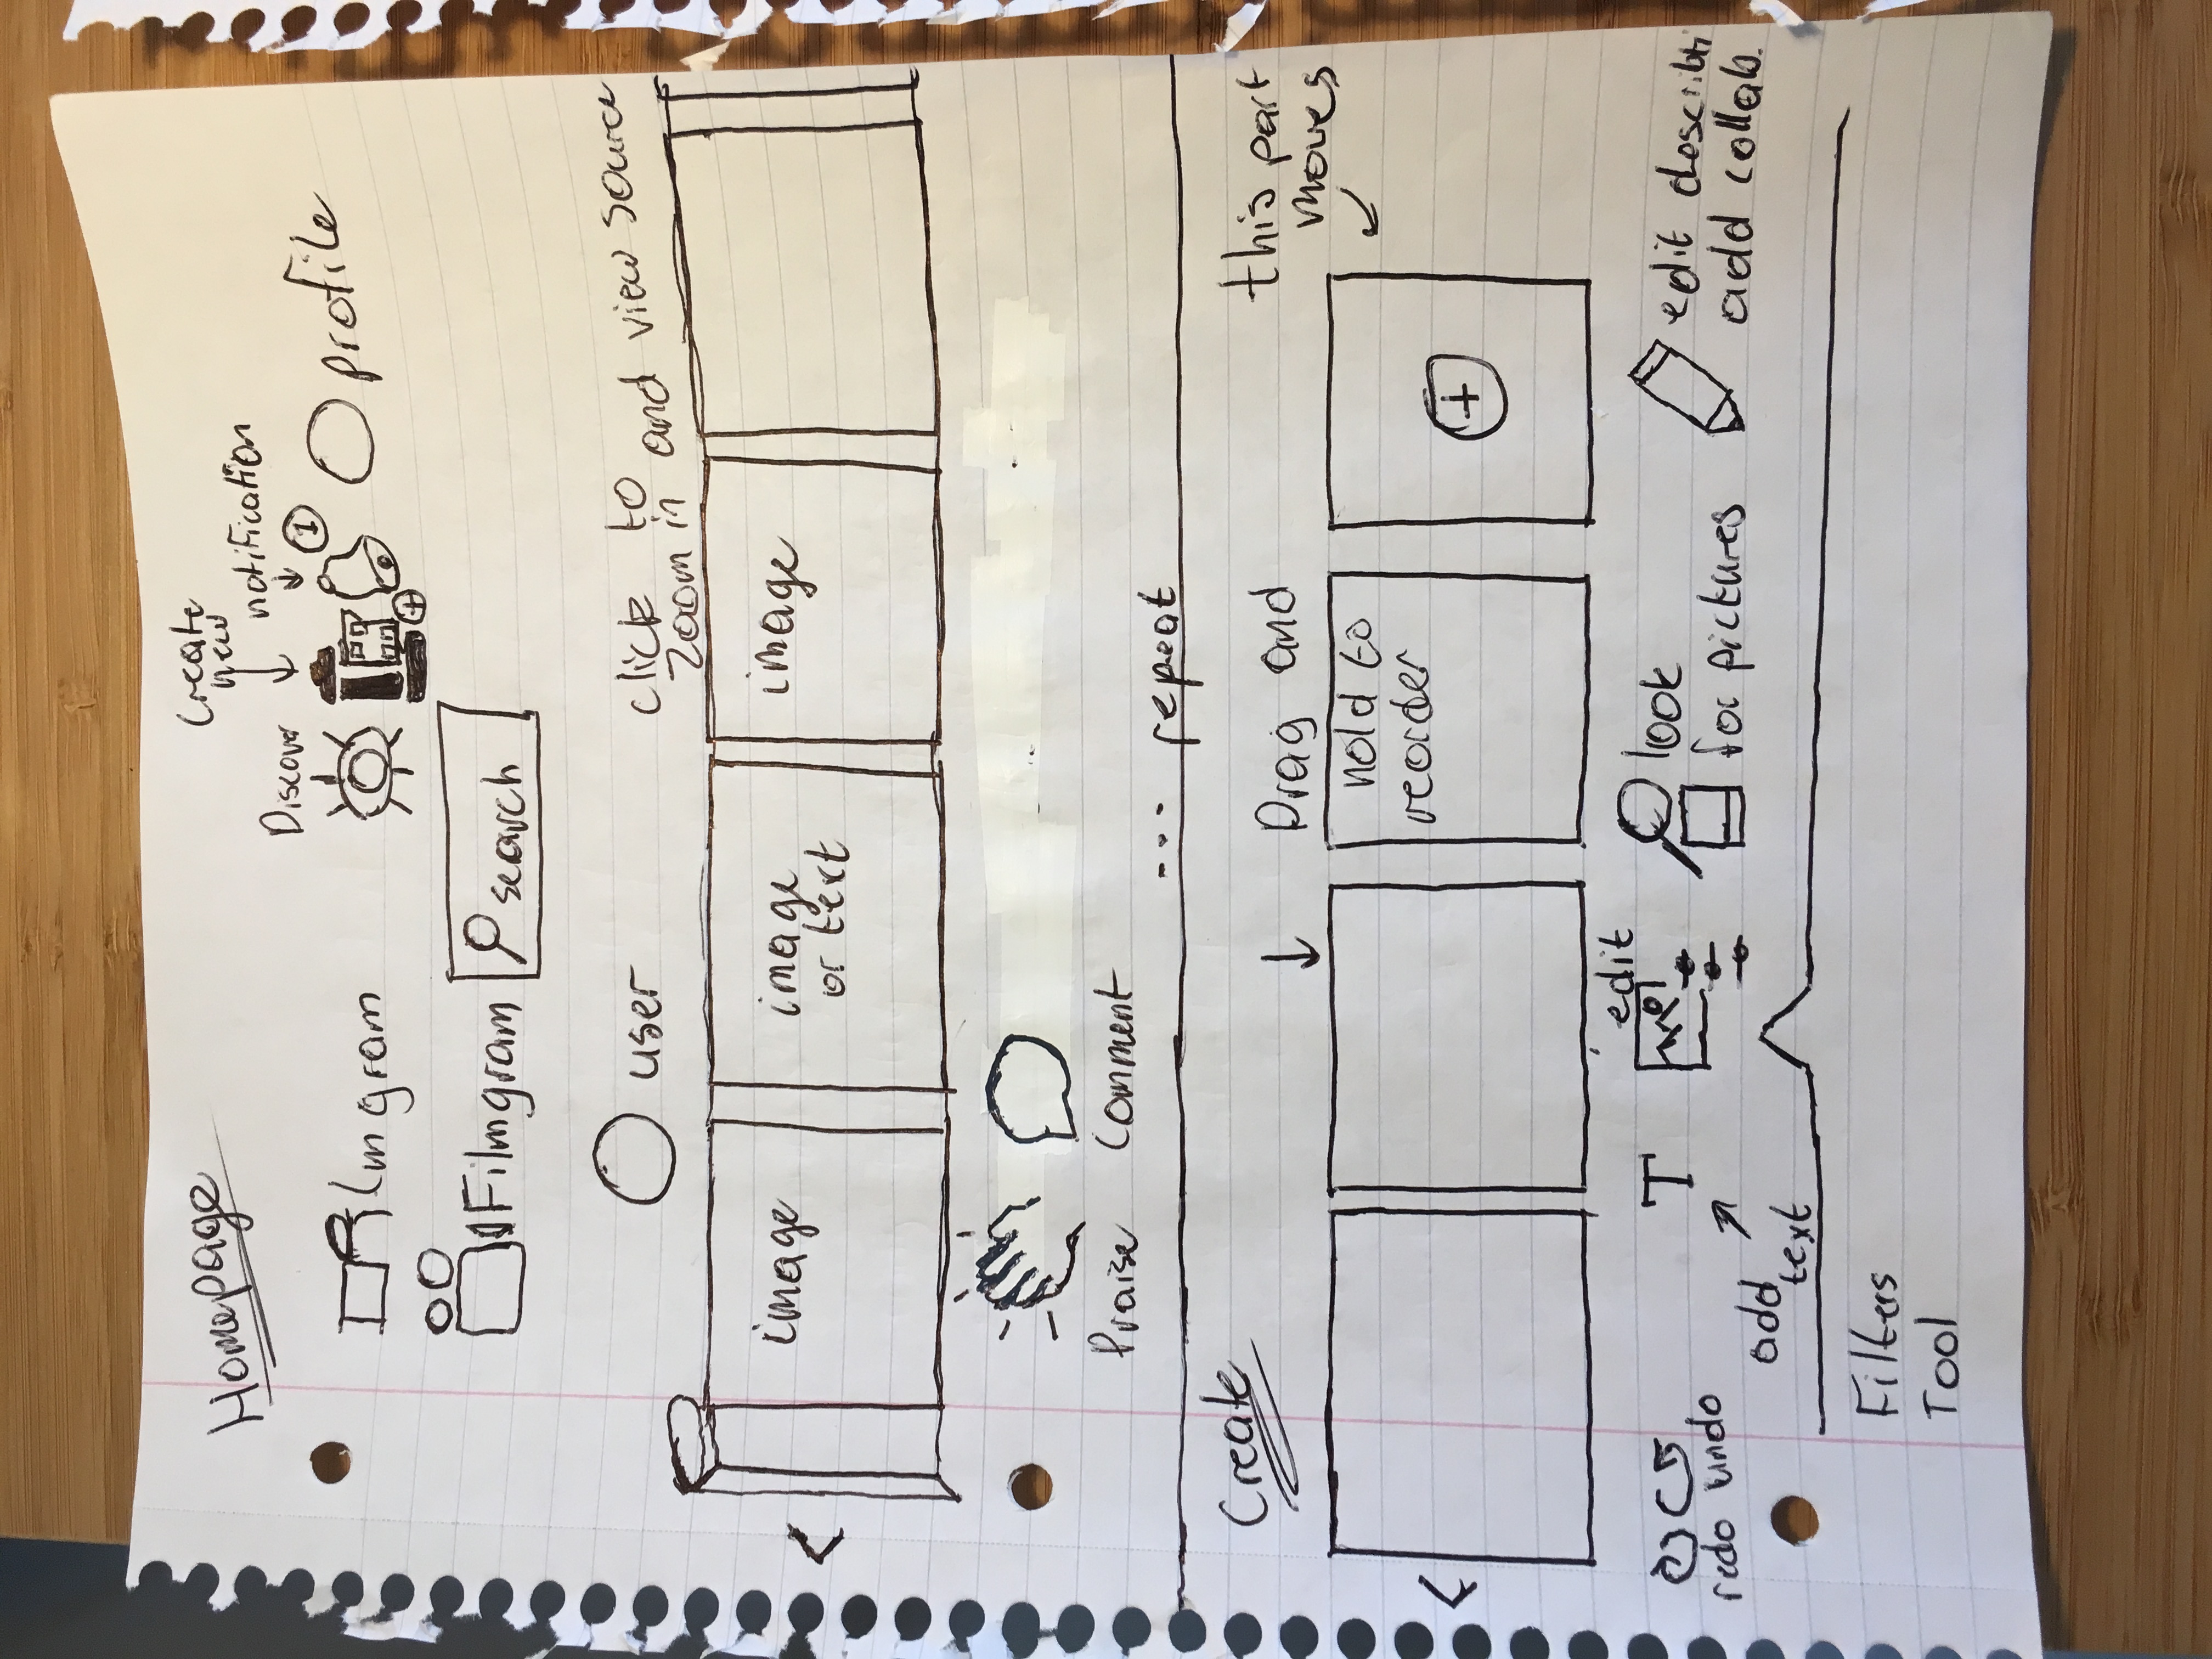 Homepage
Create
new
notification
Discover
1
lmgram
profile
Filmgram
search
user
click to
zoom in and view source
image
image
or text
image
Praise
Comment
... repeat
Create
this part
moves
Drag and
hold to
reorder
+
edit
redo undo
T
look
for pictures
edit describti
add collab.
add
text
Filters
Tool